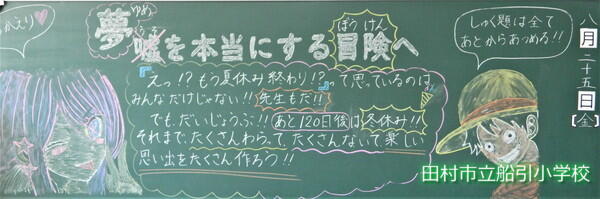 かえり♡
夢嘘を本当にする冒険へ
ゆめ
うそ
ぼうけん
『えっ!?もう夏休み終わり!?』って思っているのは
みんなだけじゃない!!先生もだ!!
でも、だいじょうぶ!!あと120日後は冬休み!!
それまで、たくさんわらって、たくさんないて、楽しい
思い出をたくさん作ろう!!
しゅく題は全て
あとからあつめる!!
八月二十五日[金]
田村市立船引小学校